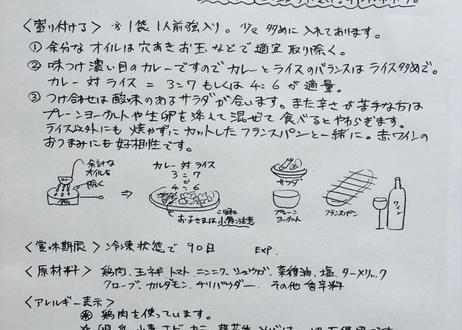 <盛り付ける> ※1袋1人前強入り。少々多めに入れております。
① 余分なオイルは穴あきお玉などで適宜取り除く。
② 味つけ濃い目のカレーですのでカレーとライスのバランスはライス多めで。
カレー 対 ライス = 3:7 もしくは 4:6 が適量。
③ つけ合せは酸味のあるサラダが合います。また辛さが苦手な方は
プレーンヨーグルトや生卵を添えて混ぜて食べるとやわらぎます。
ライス以外にも焼かずにカットしたフランスパンと一緒に。赤ワインの
おつまみにも好相性です。
余計な
オイルを
除く
カレー 対 ライス
3:7
4:6
お子さまは小骨注意
サラダ
プレーン
ヨーグルト
フランスパン
ワイン
<賞味期限> 冷凍状態で 90日 EXP.
<原材料> 鶏肉、玉ネギ、トマト、ニンニク、ショウガ、菜種油、塩、ターメリック
クローブ、カルダモン、チリパウダー、その他香辛料
<アレルギー表示>
※ 鶏肉を使っています。